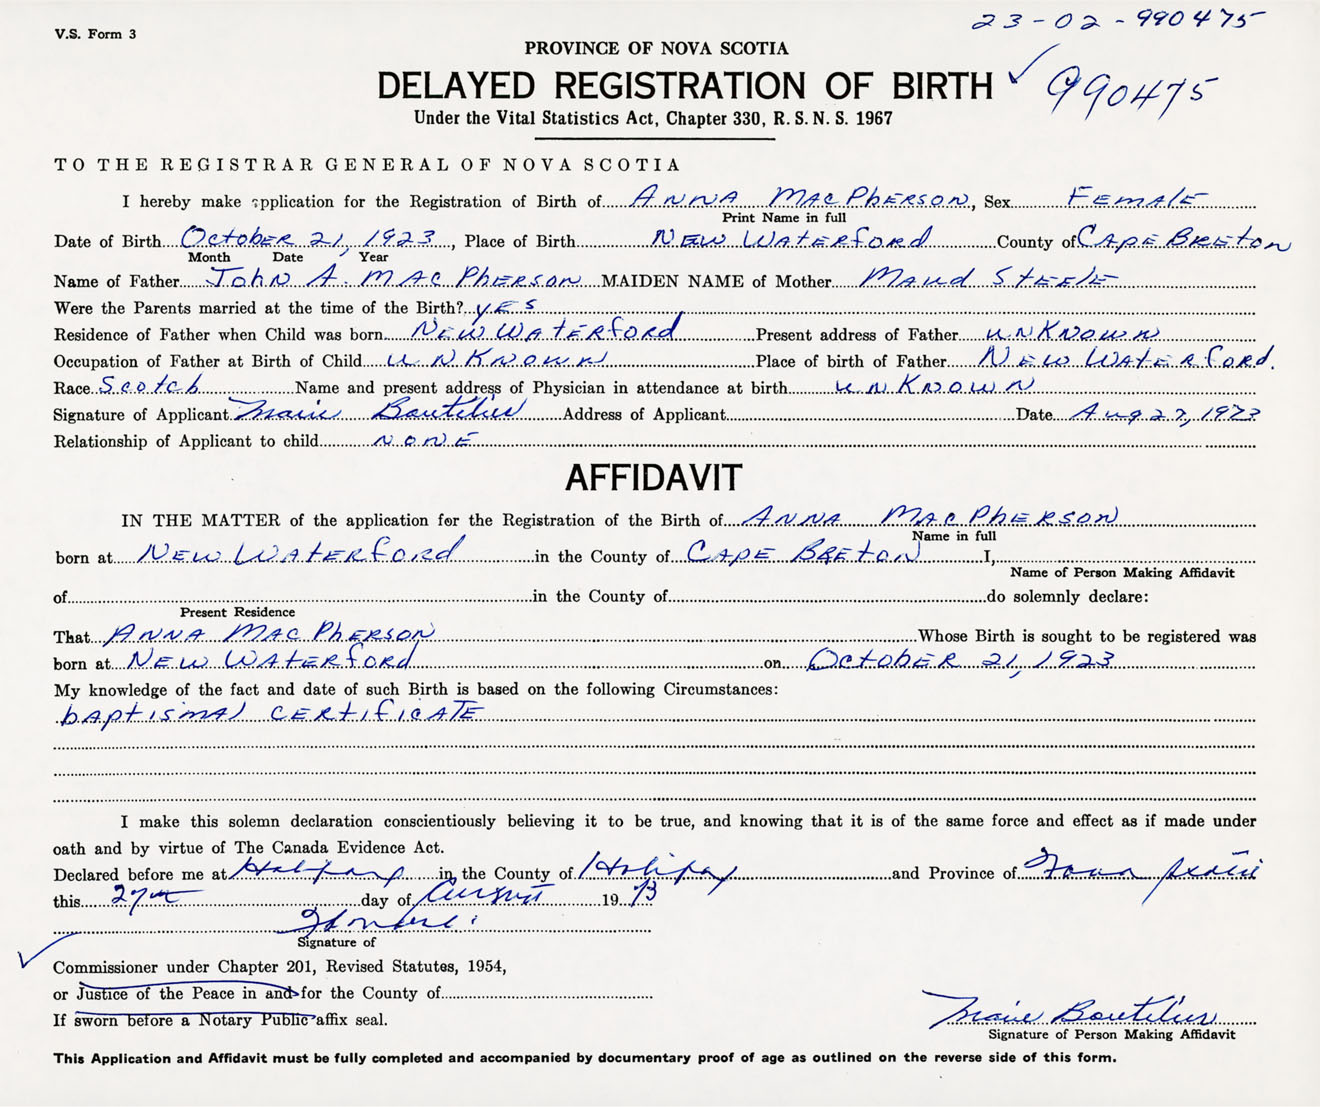 23-02-990475
V.S. Form 3
PROVINCE OF NOVA SCOTIA
DELAYED REGISTRATION OF BIRTH ✓ 990475
Under the Vital Statistics Act, Chapter 330, R. S. N. S. 1967
TO THE REGISTRAR GENERAL OF NOVA SCOTIA
I hereby make application for the Registration of Birth of Anna MacPherson, Sex Female
Print Name in full
Date of Birth October 21, 1923, Place of Birth New Waterford County of Cape Breton
Month Date Year
Name of Father John A. MacPherson MAIDEN NAME of Mother Maud Steele
Were the Parents married at the time of the Birth? yes
Residence of Father when Child was born New Waterford Present address of Father unknown
Occupation of Father at Birth of Child unknown Place of birth of Father New Waterford.
Race Scotch Name and present address of Physician in attendance at birth unknown
Signature of Applicant Marie Boutilier Address of Applicant Date Aug 27, 1973
Relationship of Applicant to child none
AFFIDAVIT
IN THE MATTER of the application for the Registration of the Birth of Anna MacPherson
Name in full
born at New Waterford in the County of Cape Breton I,
Name of Person Making Affidavit
of in the County of do solemnly declare:
Present Residence
That Anna MacPherson Whose Birth is sought to be registered was
born at New Waterford on October 21, 1923
My knowledge of the fact and date of such Birth is based on the following Circumstances:
baptismal certificate
I make this solemn declaration conscientiously believing it to be true, and knowing that it is of the same force and effect as if made under
oath and by virtue of The Canada Evidence Act.
Declared before me at Halifax in the County of Halifax and Province of Nova Scotia
this 27th day of August 1973
Signature of
✓
Commissioner under Chapter 201, Revised Statutes, 1954,
or Justice of the Peace in and for the County of
If sworn before a Notary Public affix seal.
Marie Boutilier
Signature of Person Making Affidavit
This Application and Affidavit must be fully completed and accompanied by documentary proof of age as outlined on the reverse side of this form.